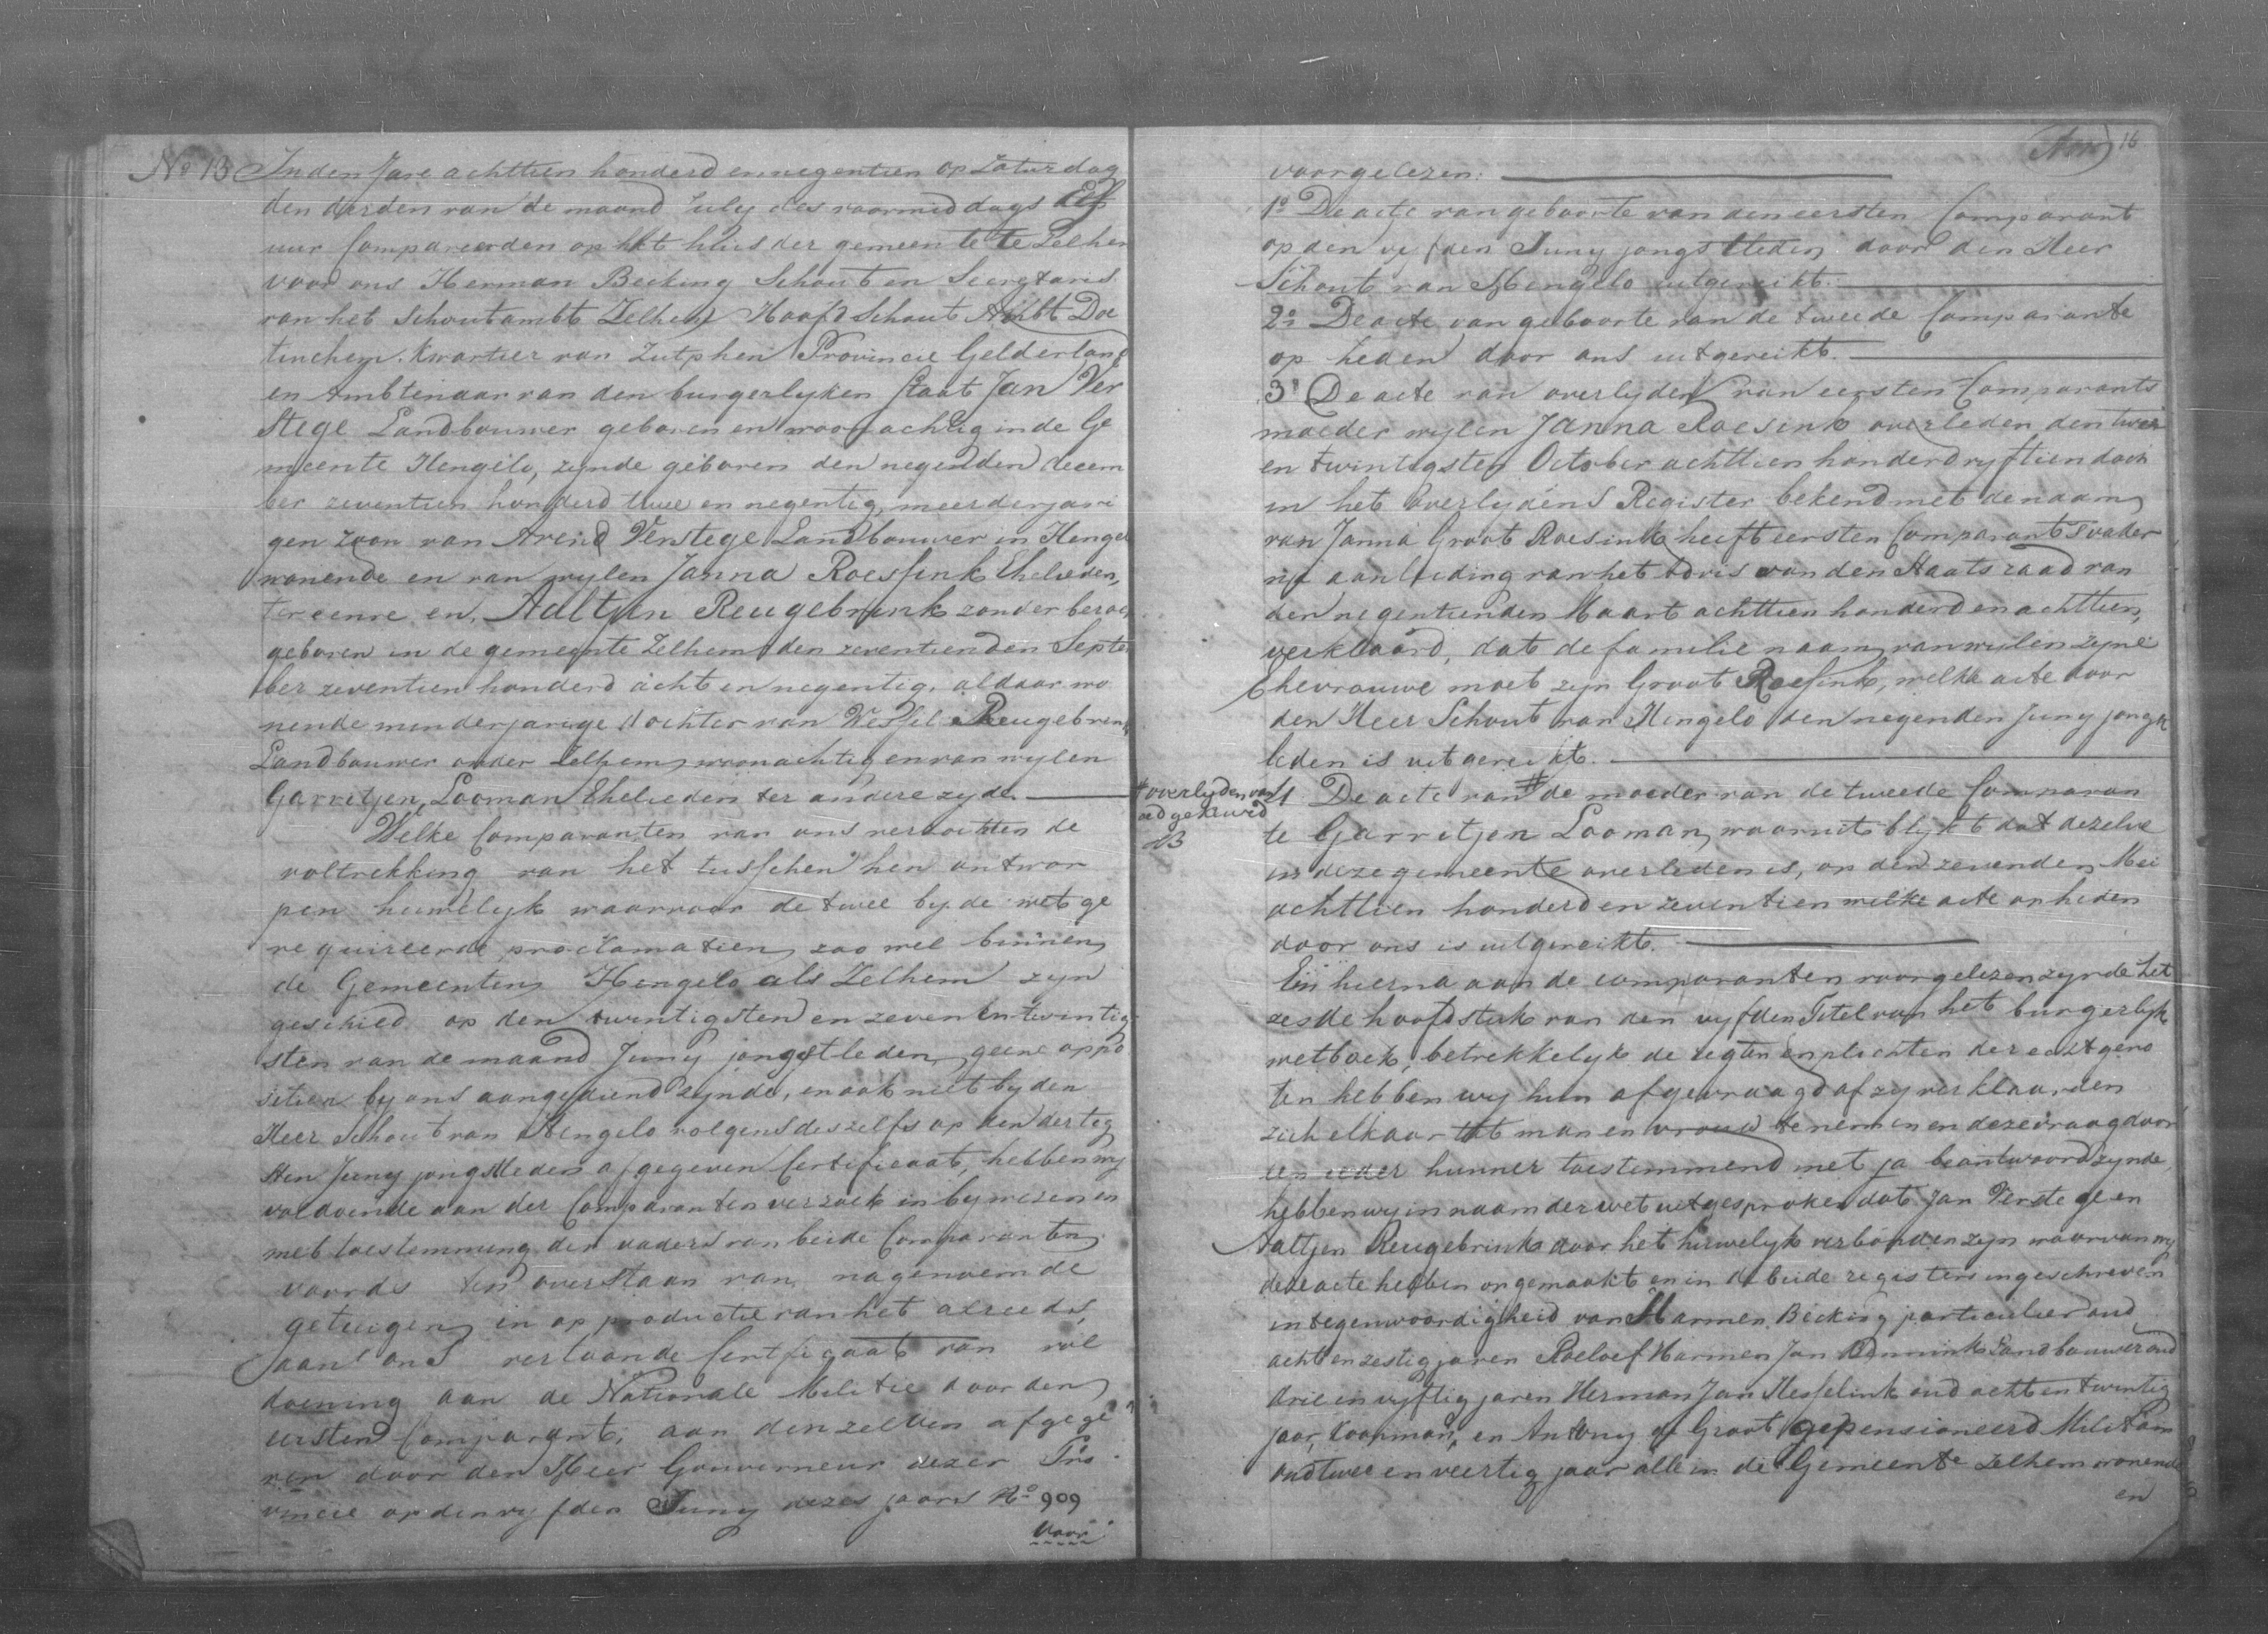 No 13 In den Jare achttien honderd en negentien op Zaturdag
den derden van de maand July des voormiddags Elf
uur Compareerden op het huis der gemeente te Zelhem
voor ons Herman Becking Schout en Secretaris
van het Schoutambt Zelhem Hoofd Schout Ambt Doe
tinchem, Kwartier van Zutphen Provincie Gelderland
en Ambtenaar van den burgerlyken Staat Jan Ver
Stege Landbouwer geboren en woonachtig in de Ge
meente Hengelo, zynde geboren den negenden decem
ber zeventien honderd twee en negentig, meerderjari
gen zoon van Arend Verstege Landbouwer in Hengelo
wonende en van wylen Janna Roessink Ehelieden,
ter eenre en, Aaltjen Reugebrink zonder beroep
geboren in de gemeente Zelhem den zeventienden Septem
ber zeventien honderd acht en negentig, aldaar wo
nende minderjarige dochter van Wessel Reugebrink
Landbouwer onder Zelhem woonachtig en van wylen
Garritjen Looman Ehelieden ter andere zyde
Welke Comparanten van ons verzochten de
voltrekking van het tusschen hen ontwor
pen huwelyk waarvoor de twee by de wet ge
requireerde proclamatien zoo wel binnen
de Gemeenten Hengelo als Zelhem zyn
geschied op den twintigsten en zeven en twintig
sten van de maand Juny jongstleden, geene oppo
sitien by ons aangediend zynde, en ook niet by den
Heer Schout van Hengelo volgens deszelfs op den dertig
sten Juny jongstleden afgegeven Certificaat, hebben wy
voldoende aan der Comparanten verzoek in bywezen en
met toestemming der vaders van beide Comparanten
voords ten overstaan van nagenoemde
getuigen, en op productie van het alreeds
aan ons vertoonde Certificaat van vol
doening aan de Nationale Militie door den
eersten Comparant, aan denzelven afgege
ven door den Heer Gouverneur dezer Pro
vincie op den vyfden Juny dezes jaars No 909
voor
16
voorgelezen:
1o De acte van geboorte van den eersten Comparant
op den vyfden Juny jongstleden door den Heer
Schout van Hengelo uitgereikt.
2o De acte van geboorte van de tweede Comparante
op heden door ons uitgereikt.
3o De acte van overlyden van eersten Comparants
moeder wylen Janna Roesink overleden den twee
en twintigsten October achttien honderd vyftien doch
in het Overlydens Register bekend met de naam
van Janna Groot Roesink heeft eersten Comparants vader
na aanleiding van het advis van den Staats raad van
den negentienden Maart achttien honderd en achttien,
verklaard, dat de familie naam van wylen zyne
Ehevrouwe moet zyn Groot Roessink, welke acte door
den Heer Schout van Hengelo den negenden Juny jongst
leden is uitgereikt.
# overlyden van
goedgekeurd
HB
4 De acte van # de moeder van de tweede Comparan
te Garritjen Looman, waaruit blykt dat dezelve
in deze gemeente overleden is, op den zevenden Mei
achttien honderd en zeventien welke acte op heden
door ons is uitgereikt.
En hierna aan de comparanten voorgelezen zynde het
zesde hoofdstuk van den vyfden Titel van het burgerlyk
wetboek, betrekkelyk de regten en plichten der echtgeno
ten hebben wy hun afgevraagd of zy verklaarden
zich elkaar tot man en vrouw te nemen en deze vraag door
een ieder hunner toestemmend met ja beantwoord zynde,
hebben wy in naam der wet uitgesproken dat Jan Verstege en
Aaltjen Reugebrink door het huwelyk verbonden zyn waarvan wy
deze acte hebben opgemaakt en in de beide registers ingeschreven
in tegenwoordigheid van Harmen Becking particulier oud
acht en zestig jaren Roelof Harmen Jan Bannink Landbouwer oud
drie en vyftig jaren Herman Jan Hesselink oud acht en twintig
jaar, Koopman, en Antony de Groot gepensioneerd Militair
oud twee en veertig jaar alle in de Gemeente Zelhem wonende
en